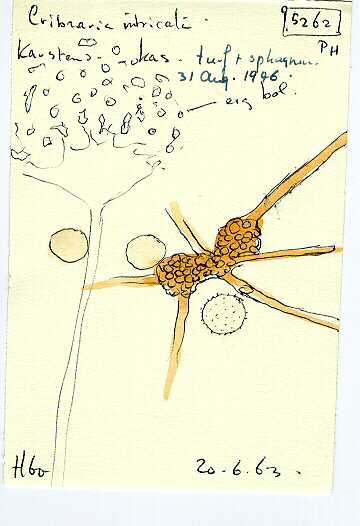 Cribraria intricata.
5262
PH
Karstens. kas. turf + sphagnum.
31 Aug. 1946.
erg bol.
H60
20.6.63.